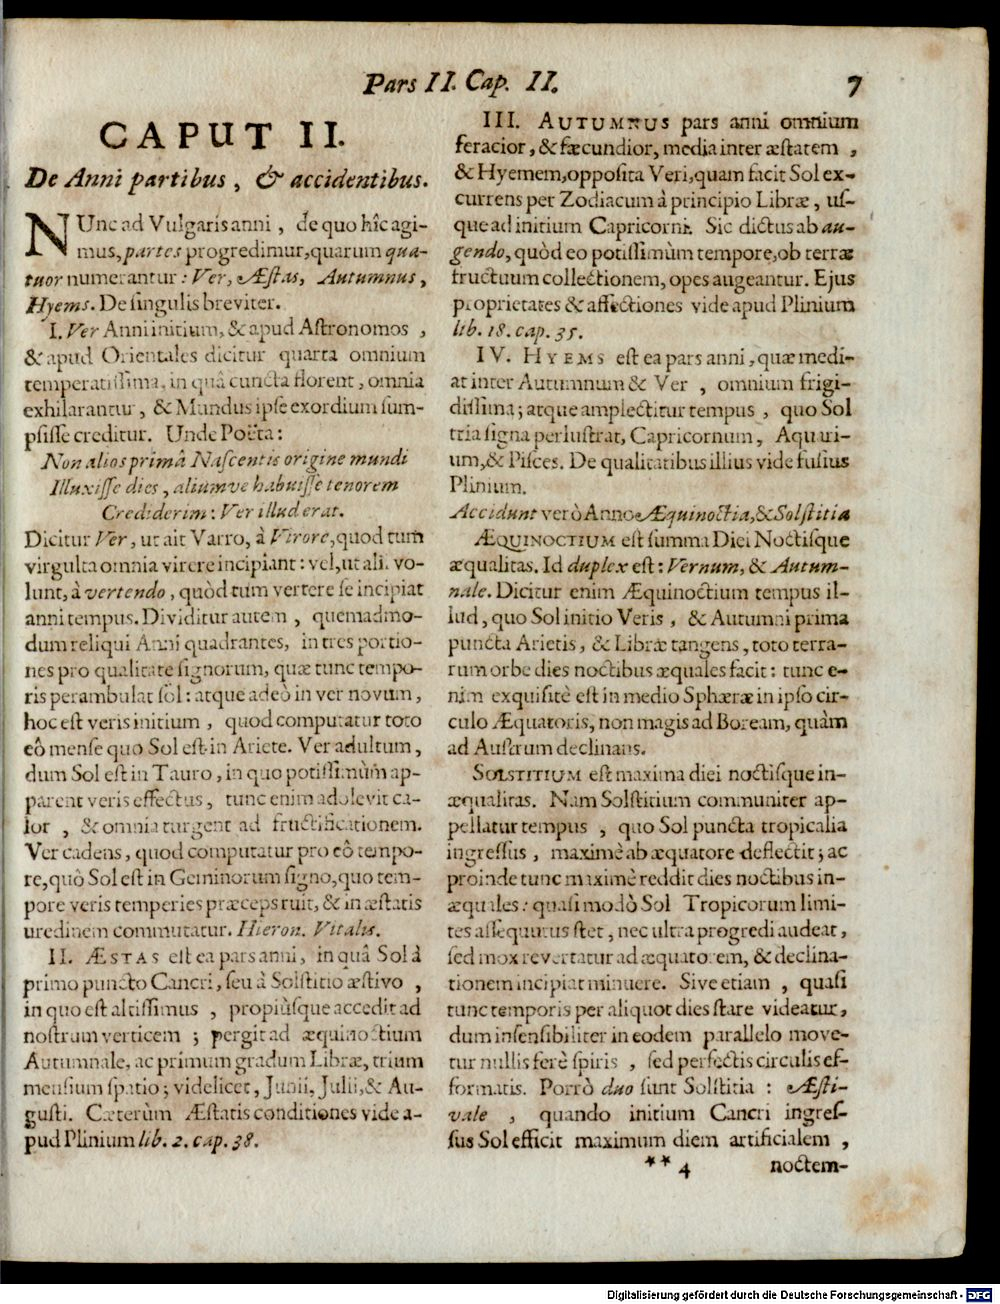 Pars II. Cap. II. 7
CAPUT II.
De Anni partibus, & accidentibus.
NUnc ad Vulgaris anni, de quo hîc agi-
mus, partes progredimur, quarum qua-
tuor numerantur: Ver, Æstas, Autumnus,
Hyems. De singulis breviter.
I. Ver Anni initium, & apud Astronomos,
& apud Orientales dicitur quarta omnium
temperatissima, in quâ cuncta florent, omnia
exhilarantur, & Mundus ipse exordium sum-
psisse creditur. Unde Poëta:
Non alios primâ Nascentis origine mundi
Illuxisse dies, aliumve habuisse tenorem
Crediderim: Ver illud erat.
Dicitur Ver, ut ait Varro, à Virore, quod tum
virgulta omnia virere incipiant: vel, ut ali. vo-
lunt, à vertendo, quòd tum vertere se incipiat
anni tempus. Dividitur autem, quemadmo-
dum reliqui Anni quadrantes, in tres portio-
nes pro qualitate signorum, quæ tunc tempo-
ris perambulat sol: atque adeò in ver novum,
hoc est veris initium, quod computatur toto
eô mense quo Sol est in Ariete. Ver adultum,
dum Sol est in Tauro, in quo potissimùm ap-
parent veris effectus, tunc enim adolevit ca-
lor, & omnia turgent ad fructificationem.
Ver cadens, quod computatur pro eô tempo-
re, quò Sol est in Geminorum signo, quo tem-
pore veris temperies præceps ruit, & in æstatis
uredinem commutatur. Hieron. Vitalis.
II. ÆSTAS est ea pars anni, in quâ Sol à
primo puncto Cancri, seu à Solstitio æstivo,
in quo est altissimus, propiùsque accedit ad
nostrum verticem; pergit ad æquinoctium
Autumnale, ac primum gradum Libræ, trium
mensium spatio; videlicet, Junii, Julii, & Au-
gusti. Cæterùm Æstatis conditiones vide a-
pud Plinium lib. 2. cap. 38.
III. AUTUMNUS pars anni omnium
feracior, & fæcundior, media inter æstatem,
& Hyemem, opposita Veri, quam facit Sol ex-
currens per Zodiacum à principio Libræ, us-
que ad initium Capricorni. Sic dictus ab au-
gendo, quòd eo potissimùm tempore, ob terræ
fructuum collectionem, opes augeantur. Ejus
proprietates & affectiones vide apud Plinium
lib. 18. cap. 35.
IV. HYEMS est ea pars anni, quæ medi-
at inter Autumnum & Ver, omnium frigi-
dissima; atque amplectitur tempus, quo Sol
tria signa perlustrat, Capricornum, Aquari-
um, & Pisces. De qualitatibus illius vide fusius
Plinium.
Accidunt verò Anno Æquinoctia, & Solstitia
ÆQUINOCTIUM est summa Diei Noctisque
æqualitas. Id duplex est: Vernum, & Autum-
nale. Dicitur enim Æquinoctium tempus il-
lud, quo Sol initio Veris, & Autumni prima
puncta Arietis, & Libræ tangens, toto terra-
rum orbe dies noctibus æquales facit: tunc e-
nim exquisitè est in medio Sphæræ in ipso cir-
culo Æquatoris, non magis ad Boream, quàm
ad Austrum declinans.
SOLSTITIUM est maxima diei noctisque in-
æqualitas. Nam Solstitium communiter ap-
pellatur tempus, quo Sol puncta tropicalia
ingressus, maximè ab æquatore deflectit; ac
proinde tunc maximè reddit dies noctibus in-
æquales: quasi modò Sol Tropicorum limi-
tes assequutus stet, nec ultra progredi audeat,
sed mox revertatur ad æquatorem, & declina-
tionem incipiat minuere. Sive etiam, quasi
tunc temporis per aliquot dies stare videatur,
dum insensibiliter in eodem parallelo move-
tur nullis ferè spiris, sed perfectis circulis ef-
formatis. Porrò duo sunt Solstitia: Æsti-
vale, quando initium Cancri ingres-
sus Sol efficit maximum diem artificialem,
** 4 noctem-
Digitalisierung gefördert durch die Deutsche Forschungsgemeinschaft - DFG